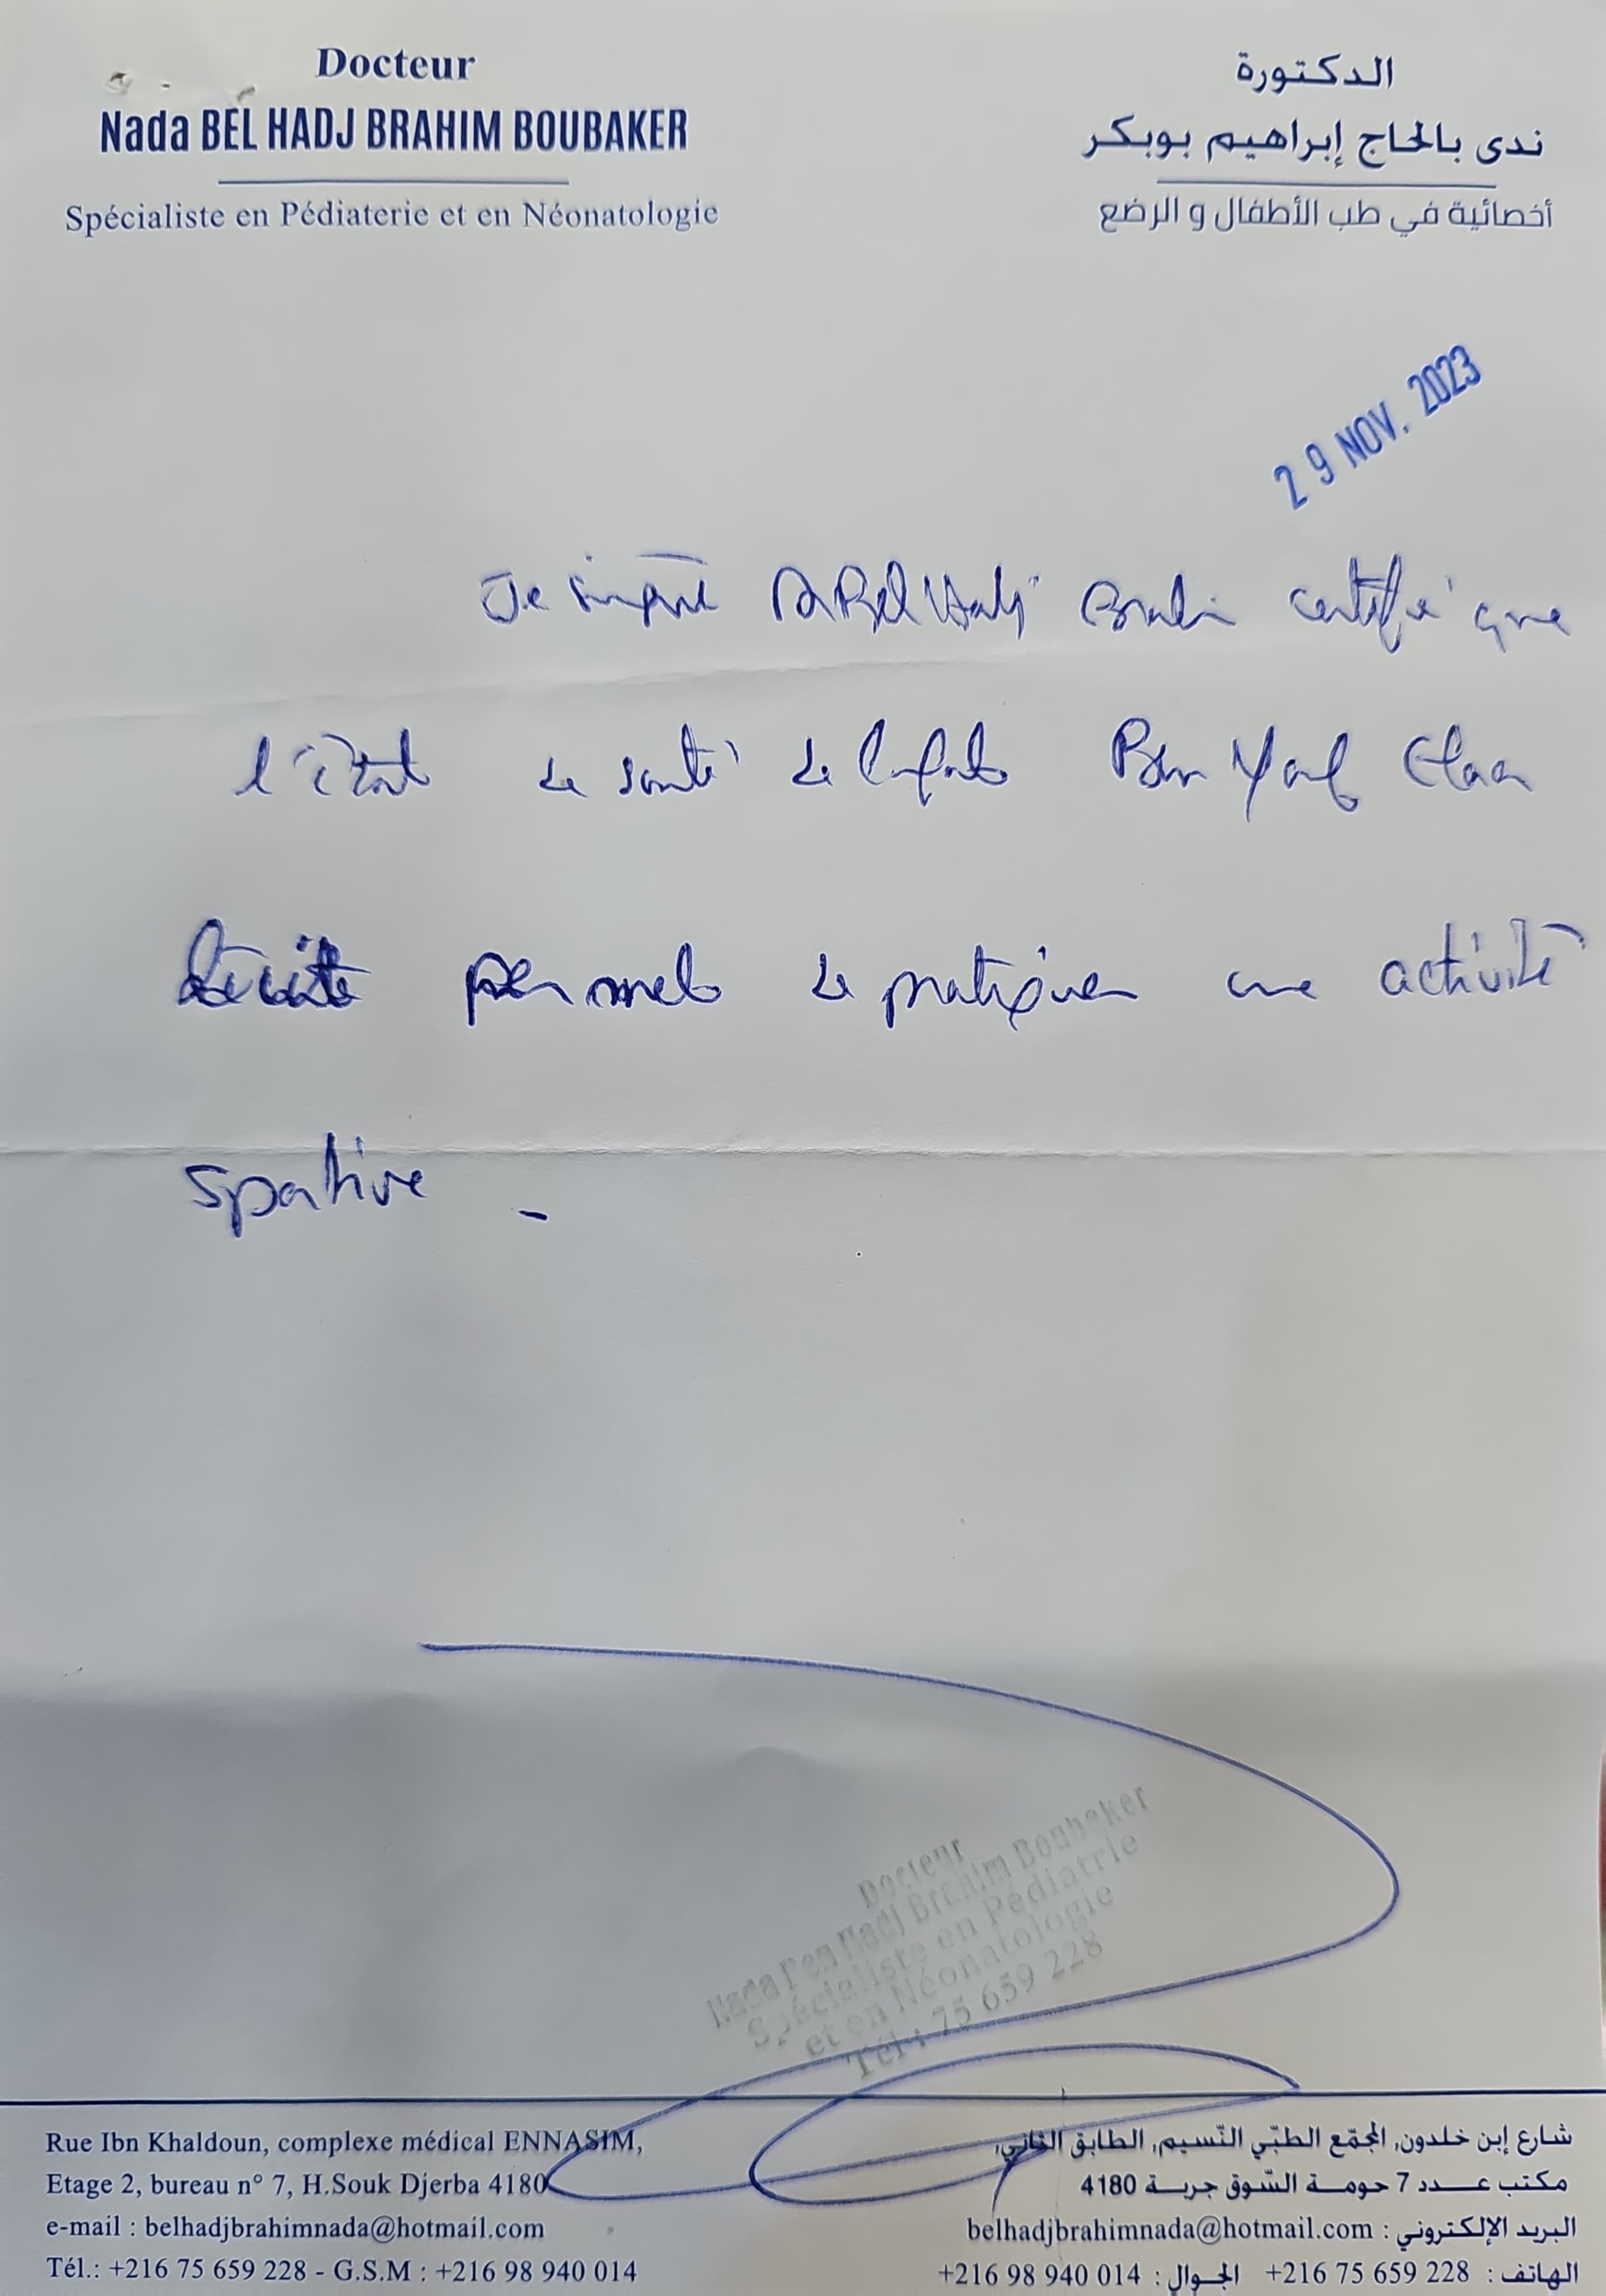 Docteur
Nada BEL HADJ BRAHIM BOUBAKER
Spécialiste en Pédiaterie et en Néonatologie
الدكتورة
ندى بالحاج إبراهيم بوبكر
أخصائية في طب الأطفال و الرضع
29 NOV. 2023
Je Dr Bel Hadj Brahim certifie que
l'état de santé de l'enfant Ben
permet de pratiquer une activité
sportive -
Docteur
Nada Ben Hadj Brahim Boubaker
Spécialiste en Pédiatrie
et en Néonatologie
Tél : 75 659 228
Rue Ibn Khaldoun, complexe médical ENNASIM,
Etage 2, bureau n° 7, H.Souk Djerba 4180
e-mail : belhadjbrahimnada@hotmail.com
Tél.: +216 75 659 228 - G.S.M : +216 98 940 014
شارع إبن خلدون, المجمّع الطبّي النّسيم, الطابق الثاني,
مكتب عـــدد 7 حومـة السّوق جربـة 4180
البريد الإلكتروني : belhadjbrahimnada@hotmail.com
الهاتف : 228 659 75 216+ الجـوال : 014 940 98 216+